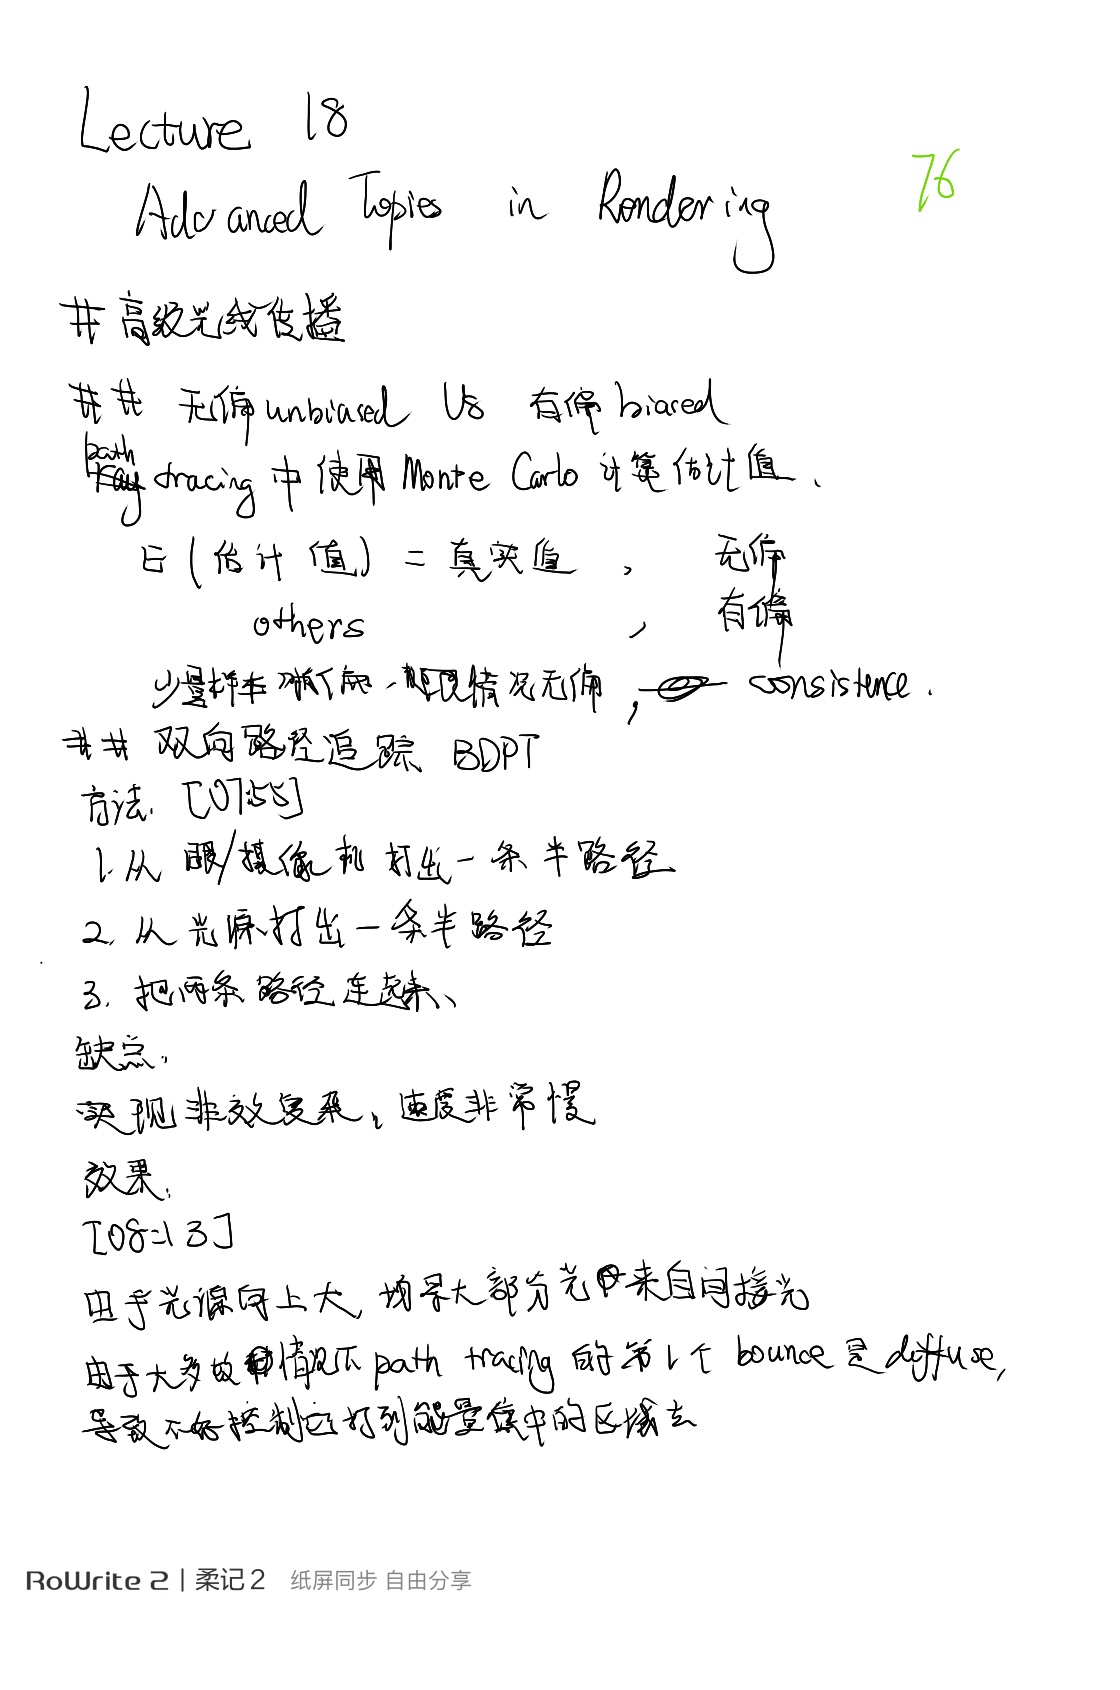 Lecture 18
76
Advanced Topics in Rendering
# 高级光线传播
## 无偏 unbiased VS 有偏 biased
path
tracing 中使用 Monte Carlo 计算估计值、
E(估计值) = 真实值, 无偏
others, 有偏
少量样本 情况无偏, consistence.
## 双向路径追踪 BDPT
方法. [07:55]
1. 从眼/摄像机打出一条半路径
2. 从光源打出一条半路径
3. 把两条路径连起来、
缺点:
实现非效复杂, 速度非常慢
效果:
[08:13]
由于光源向上大, 场景大部分光来自间接光
由于大多数情况下 path tracing 的第1个 bounce 是 diffuse,
导致不好控制它打到能量集中的区域去
RoWrite 2 | 柔记2 纸屏同步 自由分享